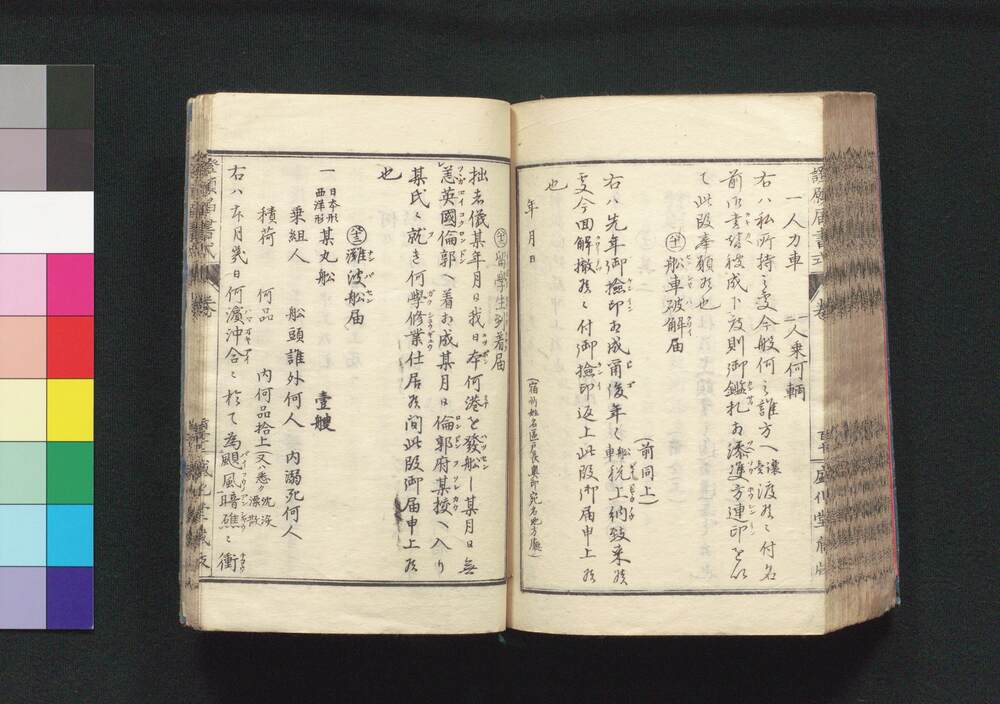 一人力車　一人乗何輌
右ハ私所持之處今般何之誰方ヘ讓渡候ニ付名
前御書替被成下度則御鑑札相添雙方連印を以
て此段奉願候也
船車破解届
（前同上）
右ハ先年御撿印相成爾後年々船車税上納致来候
處今回解撤候ニ付御撿印返上此段御届申上候
也
年月日
（宿所姓名區戸長奥印宛名地方廳）
留學生到着届
拙者儀某年月日我日本何港を發船シ某月日無
恙英國倫郭ヘ着相成某月日倫郭府某校ヘ入リ
某氏ニ就き何學修業仕居候間此段御届申上候
也
難波船届
一 日本形西洋形 某丸船　壹艘
乗組人　船頭誰外何人　内溺死何人
積荷　何品　内何品拾上（又ハ悉ク沈没漂散）
右ハ本月幾日何濱沖合ニ於て為颶風暗礁ニ衝
證願届書式　卷一
盛化堂